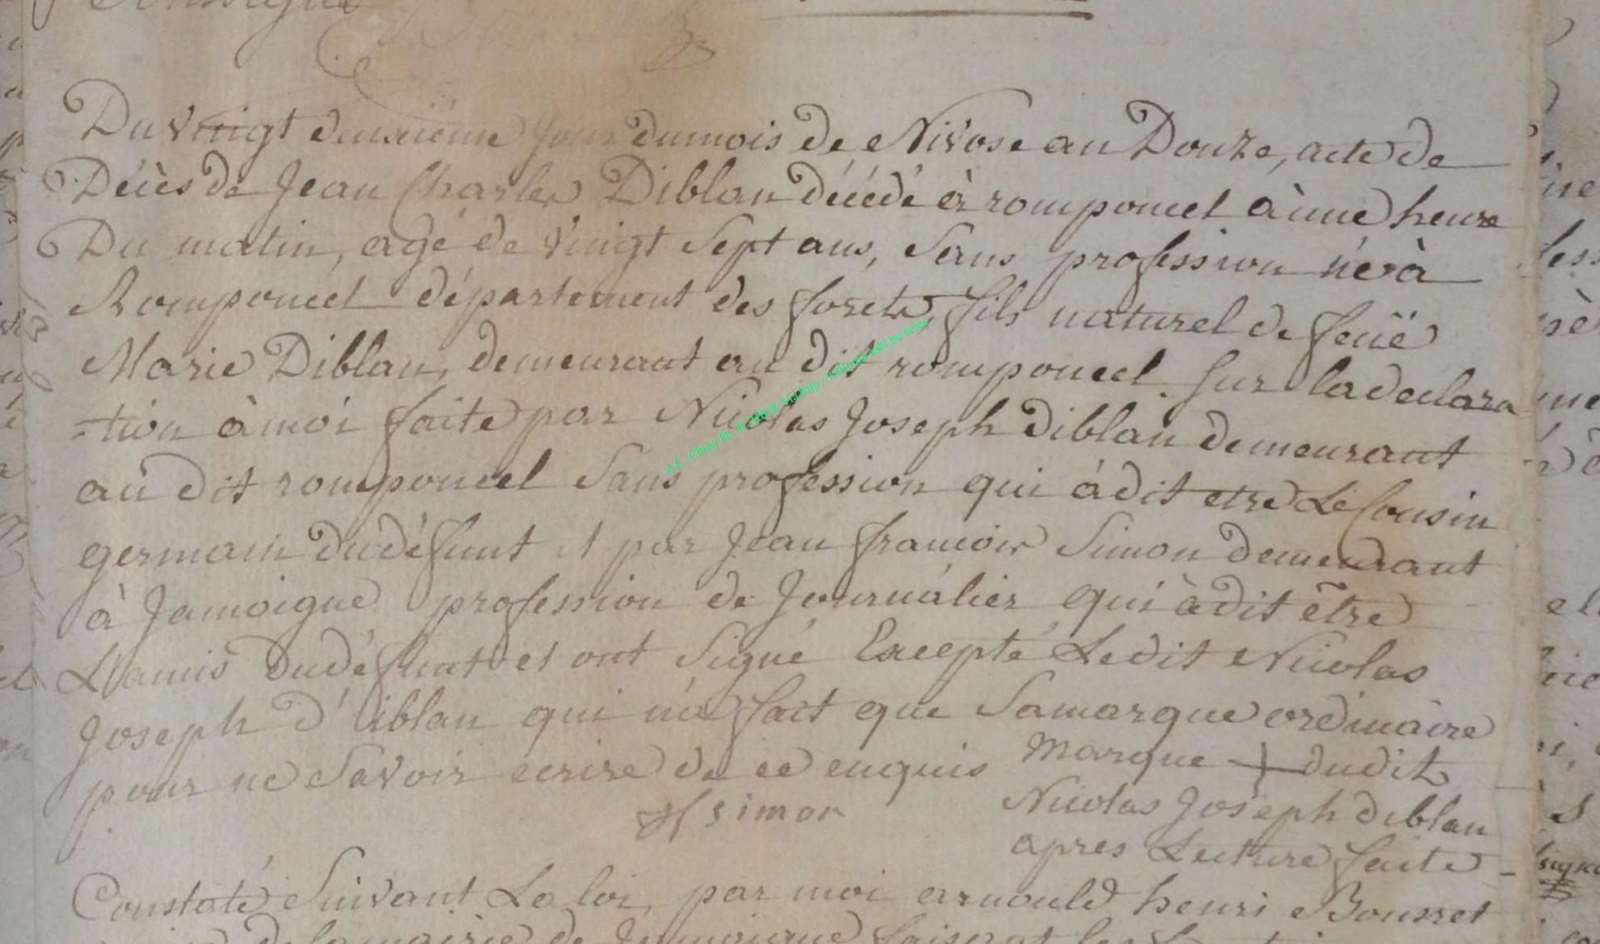 Du Vingt deuxième jour dumois de Nivose an Douze, acte de
Décès de Jean Charles Diblan décédé à romponcel à une heure
Du matin, agé de Vingt Sept ans, Sans profession né à
Romponcel département des forets, fils naturel de feuë
Marie Diblan, demeurant au dit romponcel Sur la declara
-tion à moi faite par Nicolas Joseph diblan demeurant
au dit romponcel Sans profession qui à dit etre Le Cousin
germain dudéfunt et par Jean francois Simon demeurant
à Jamoigne profession de Journalier qui à dit être
L'amis dudéfunt et ont Signé Excepté Ledit Nicolas
Joseph d'iblan qui n'a fait que Samarque ordinaire
pour ne Savoir ecrire de ce enquis Marque + dudit
Simon Nicolas Joseph diblan
apres Lecture faite
Constaté Suivant La loi, par moi arnould henri Bourret
de la mairie de Jamoigne faisant les